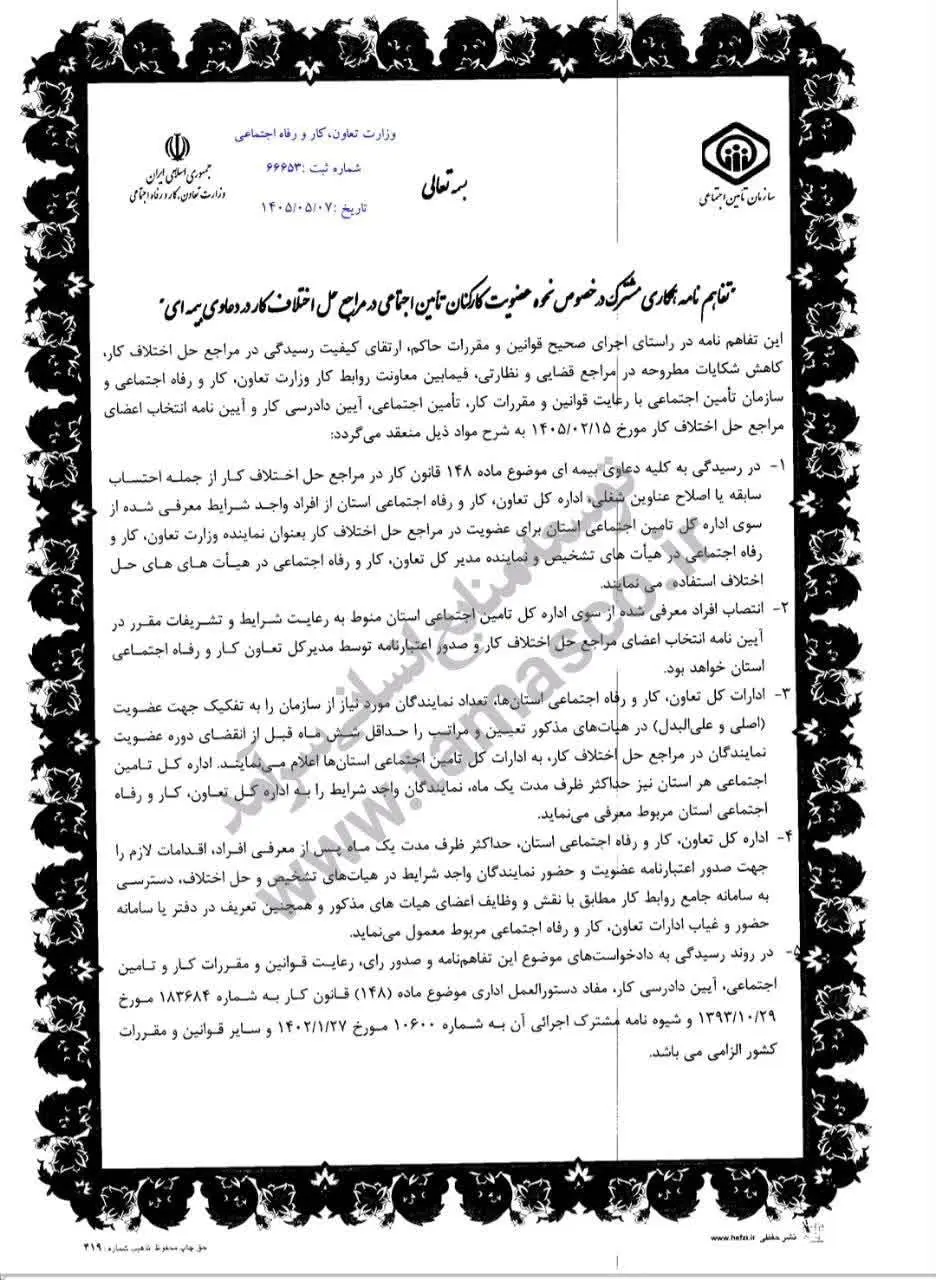 وزارت تعاون، کار و رفاه اجتماعی
شماره ثبت :۶۶۶۵۳
تاریخ :۱۴۰۵/۰۵/۰۷
جمهوری اسلامی ایران
وزارت تعاون، کار و رفاه اجتماعی
بسمه تعالی
سازمان تأمین اجتماعی
"تفاهم نامه همکاری مشترک در خصوص نحوه عضویت کارکنان تأمین اجتماعی در مراجع حل اختلاف کار در دعاوی بیمه ای"
این تفاهم نامه در راستای اجرای صحیح قوانین و مقررات حاکم، ارتقای کیفیت رسیدگی در مراجع حل اختلاف کار،
کاهش شکایات مطروحه در مراجع قضایی و نظارتی، فیمابین معاونت روابط کار وزارت تعاون، کار و رفاه اجتماعی و
سازمان تأمین اجتماعی با رعایت قوانین و مقررات کار، تأمین اجتماعی، آیین دادرسی کار و آیین نامه انتخاب اعضای
مراجع حل اختلاف کار مورخ ۱۴۰۵/۰۲/۱۵ به شرح مواد ذیل منعقد می‌گردد:
۱- در رسیدگی به کلیه دعاوی بیمه ای موضوع ماده ۱۴۸ قانون کار در مراجع حل اختلاف کار از جمله احتساب
سابقه یا اصلاح عناوین شغلی، اداره کل تعاون، کار و رفاه اجتماعی استان از افراد واجد شرایط معرفی شده از
سوی اداره کل تامین اجتماعی استان برای عضویت در مراجع حل اختلاف کار بعنوان نماینده وزارت تعاون، کار و
رفاه اجتماعی در هیأت های تشخیص و نماینده مدیر کل تعاون، کار و رفاه اجتماعی در هیأت های های حل
اختلاف استفاده می نمایند.
۲- انتصاب افراد معرفی شده از سوی اداره کل تامین اجتماعی استان منوط به رعایت شرایط و تشریفات مقرر در
آیین نامه انتخاب اعضای مراجع حل اختلاف کار و صدور اعتبارنامه توسط مدیرکل تعاون کار و رفاه اجتماعی
استان خواهد بود.
۳- ادارات کل تعاون، کار و رفاه اجتماعی استان‌ها، تعداد نمایندگان مورد نیاز از سازمان را به تفکیک جهت عضویت
(اصلی و علی‌البدل) در هیات‌های مذکور تعیین و مراتب را حداقل شش ماه قبل از انقضای دوره عضویت
نمایندگان در مراجع حل اختلاف کار، به ادارات کل تامین اجتماعی استان‌ها اعلام می‌نمایند. اداره کل تامین
اجتماعی هر استان نیز حداکثر ظرف مدت یک ماه، نمایندگان واجد شرایط را به اداره کل تعاون، کار و رفاه
اجتماعی استان مربوط معرفی می‌نماید.
۴- اداره کل تعاون، کار و رفاه اجتماعی استان، حداکثر ظرف مدت یک ماه پس از معرفی افراد، اقدامات لازم را
جهت صدور اعتبارنامه عضویت و حضور نمایندگان واجد شرایط در هیات‌های تشخیص و حل اختلاف، دسترسی
به سامانه جامع روابط کار مطابق با نقش و وظایف اعضای هیات های مذکور و همچنین تعریف در دفتر یا سامانه
حضور و غیاب ادارات تعاون، کار و رفاه اجتماعی مربوط معمول می‌نماید.
۵- در روند رسیدگی به دادخواست‌های موضوع این تفاهم‌نامه و صدور رای، رعایت قوانین و مقررات کار و تامین
اجتماعی، آیین دادرسی کار، مفاد دستورالعمل اداری موضوع ماده (۱۴۸) قانون کار به شماره ۱۸۳۶۸۴ مورخ
۱۳۹۳/۱۰/۲۹ و شیوه نامه مشترک اجرائی آن به شماره ۱۰۶۰۰ مورخ ۱۴۰۲/۱/۲۷ و سایر قوانین و مقررات
کشور الزامی می باشد.
توسعه منابع انسانی سرآمد
www.tamasco.ir
نشر حفظی www.hefzi.ir
حق چاپ محفوظ تذهیب شماره: ۴۱۹